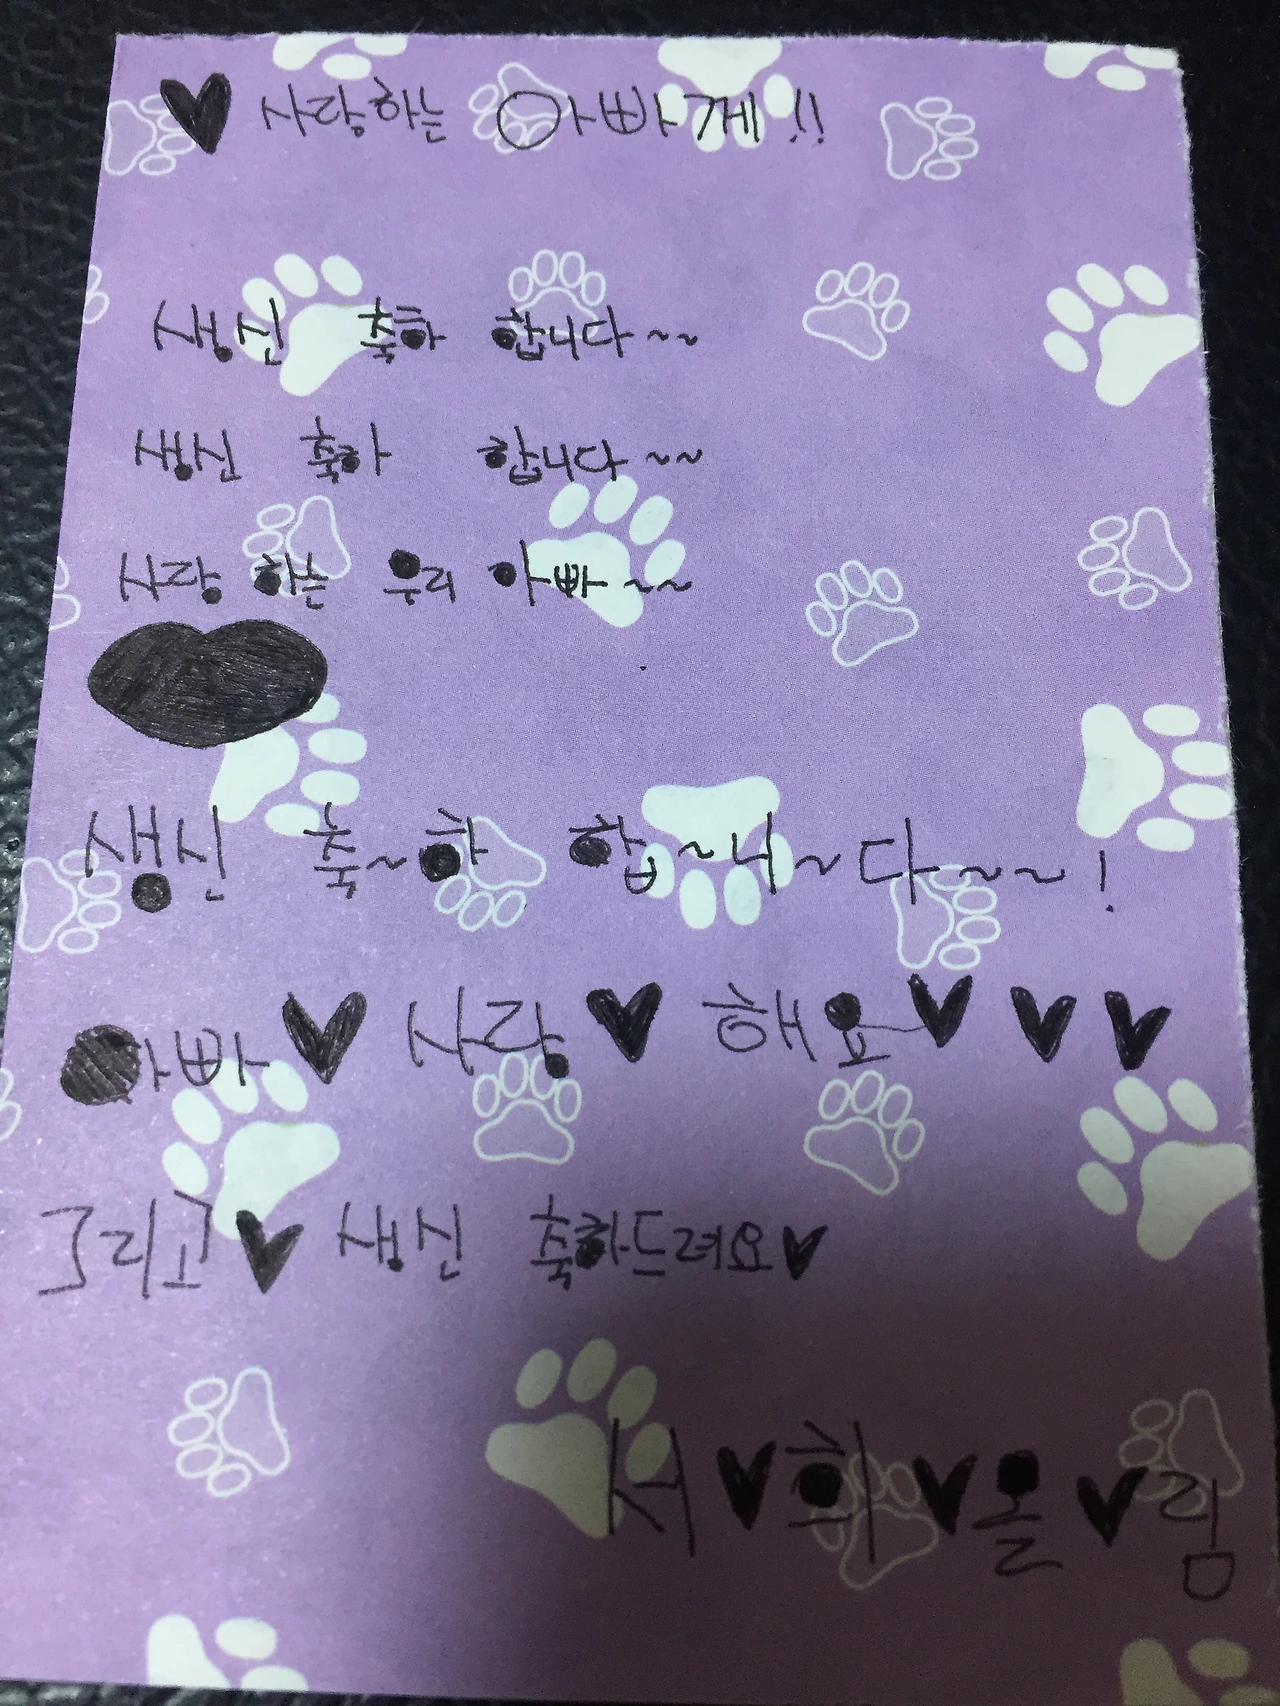 ♥ 사랑하는 아빠께!!
생신 축하 합니다~~
생신 축하 합니다~~
사랑 하는 우리 아빠~~
생신 축~하 합~니~다~~~!
아빠♥ 사랑♥ 해요♥♥♥
그리고♥ 생신 축하드려요♥
서♥희♥올♥림